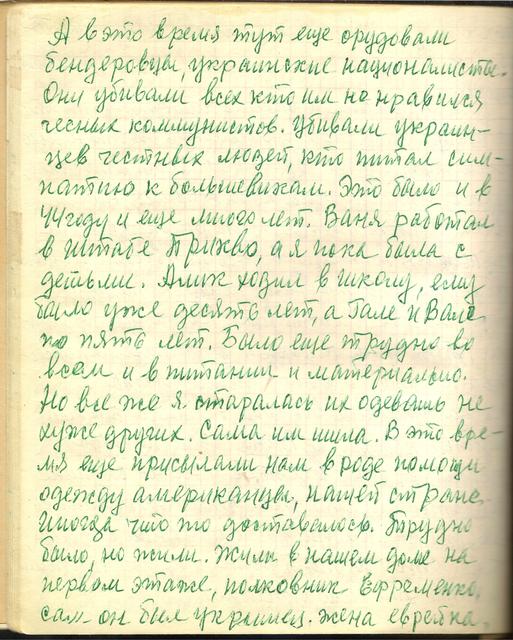 А в это время тут еще орудовали
бендеровцы, украинские националисты.
Они убивали всех кто им не нравился
чесных коммунистов. Убивали украин-
цев честных людей, кто питал сим-
патию к большевикам. Это было и в
44 году и еще много лет. Ваня работал
в штабе Прикво, а я пока была с
детьми. Алик ходил в школу, ему
было уже десять лет, а Гале и Вале
по пять лет. Было еще трудно во
всем и в питании и материально.
Но все же я старалась их одевать не
хуже других. Сама им шила. В это вре-
мя еще присылали нам вроде помощи
одежду американцы, нашей стране
Иногда что то доставалось. Трудно
было, но жили. Жилы в нашем доме на
первом этаже, полковник Ефременко,
сам-он был украинец. жена еврейка.